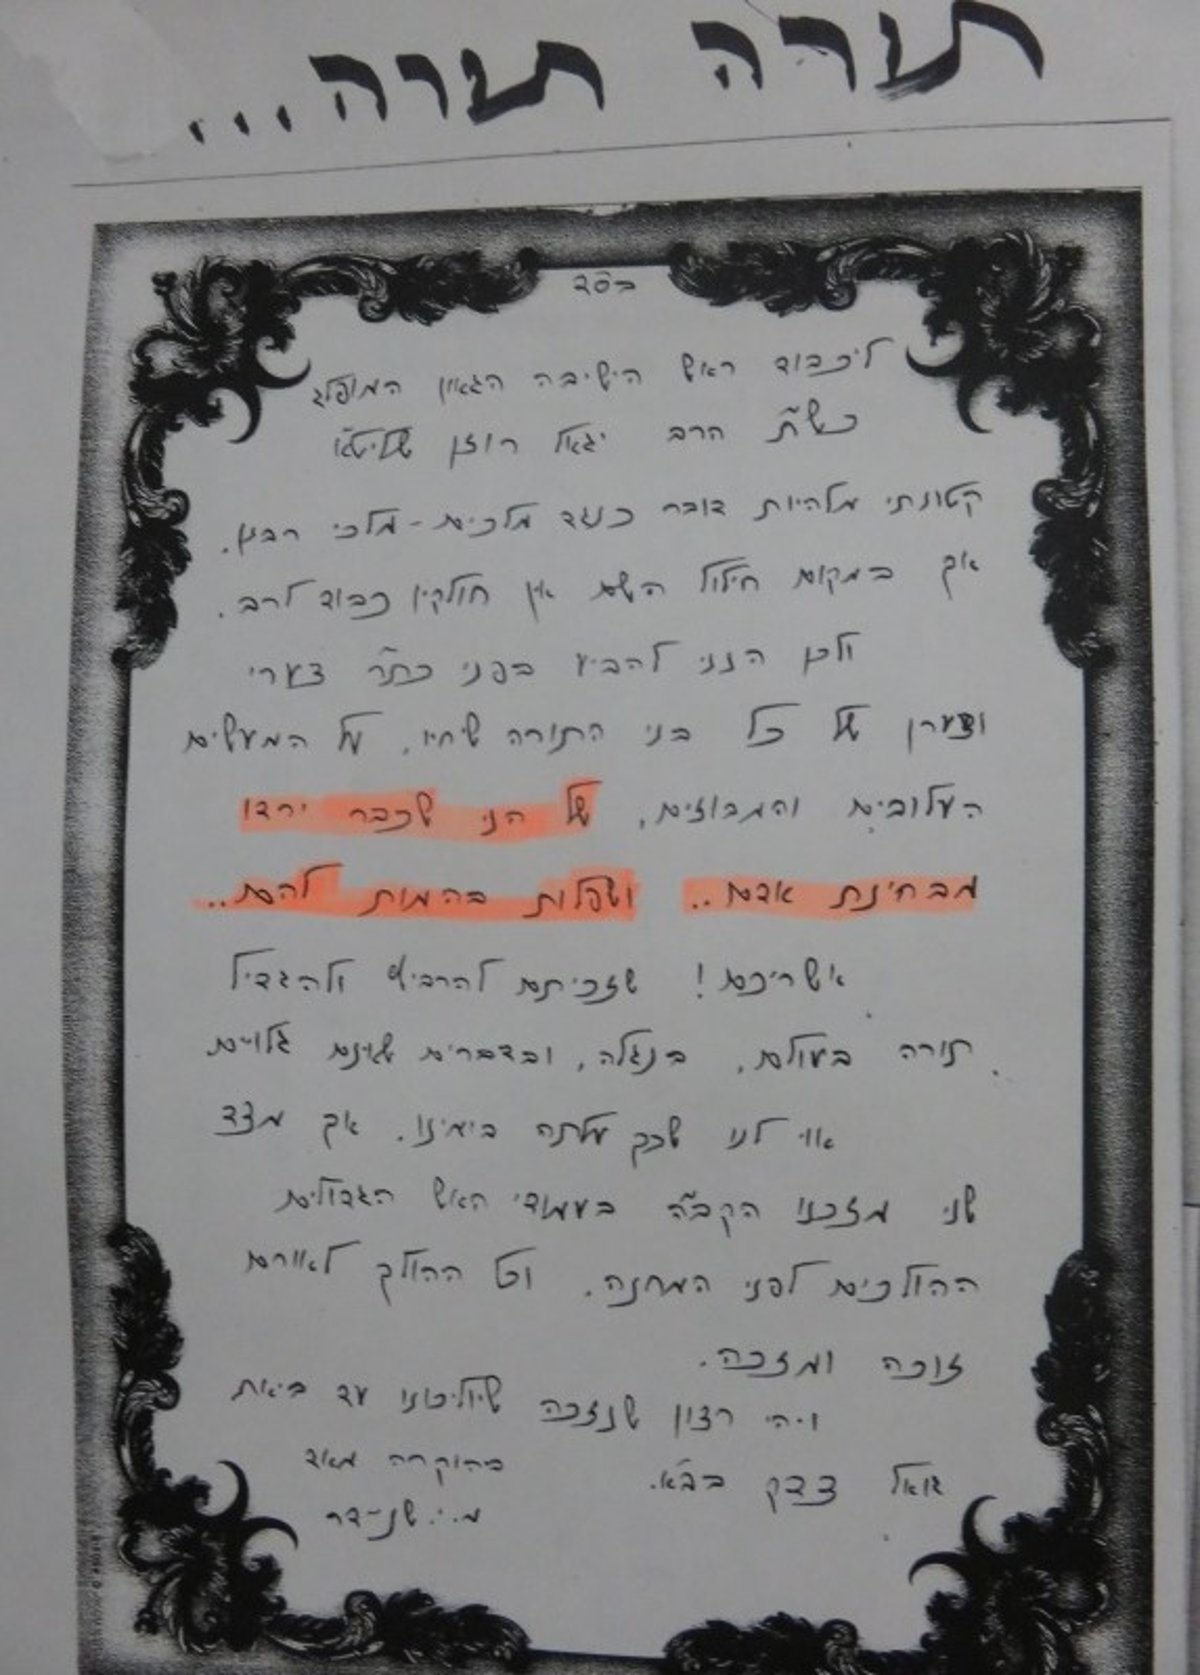 תורה תורה...
בס״ד
ליכבוד ראש הישיבה הגאון המופלג
כש״ת הרב יגאל רוזן שליט״א
קטונתי מלהיות דובר כנגד מלכים - מלכי רבנן.
אך במקום חילול השם אין חולקין כבוד לרב.
ולכן הנני להביע בפני כת״ר צערי
וצערן של כל בני התורה שיחיו, על המעשים
העלובים והמבוזים, של הני שכבר ירדו
מבחינת אדם.. ושפלות בהמות להם..
אשריכם! שזכיתם להרביץ ולהגדיל
תורה בעולם, בנגלה, ובדברים שאינם גלויים
אוי לנו שכך עלתה בימינו. אך מצד
שני מזכנו הקב״ה בעמודי האש הגדולים
ההולכים לפני המחנה. וכל ההולך לאורם
זוכה ומזכה.
ויהי רצון שנזכה שיוליכונו עד ביאת
גואל צדק בב״א.
בהוקרה מאוד
מ.י. שניידר